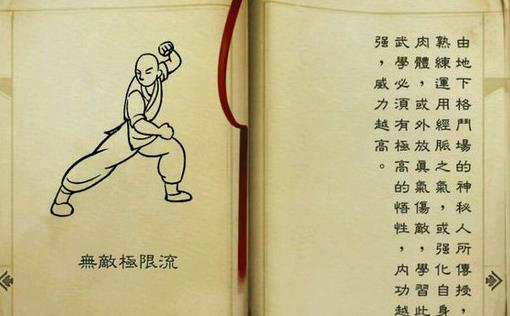 無敵極限流
由地下格鬥場的神秘人所傳授，
熟練運用經脈之氣，或强化自身
肉體，或外放眞氣傷敵，學習此
武學必須有極高的悟性，内功越
强，威力越高。